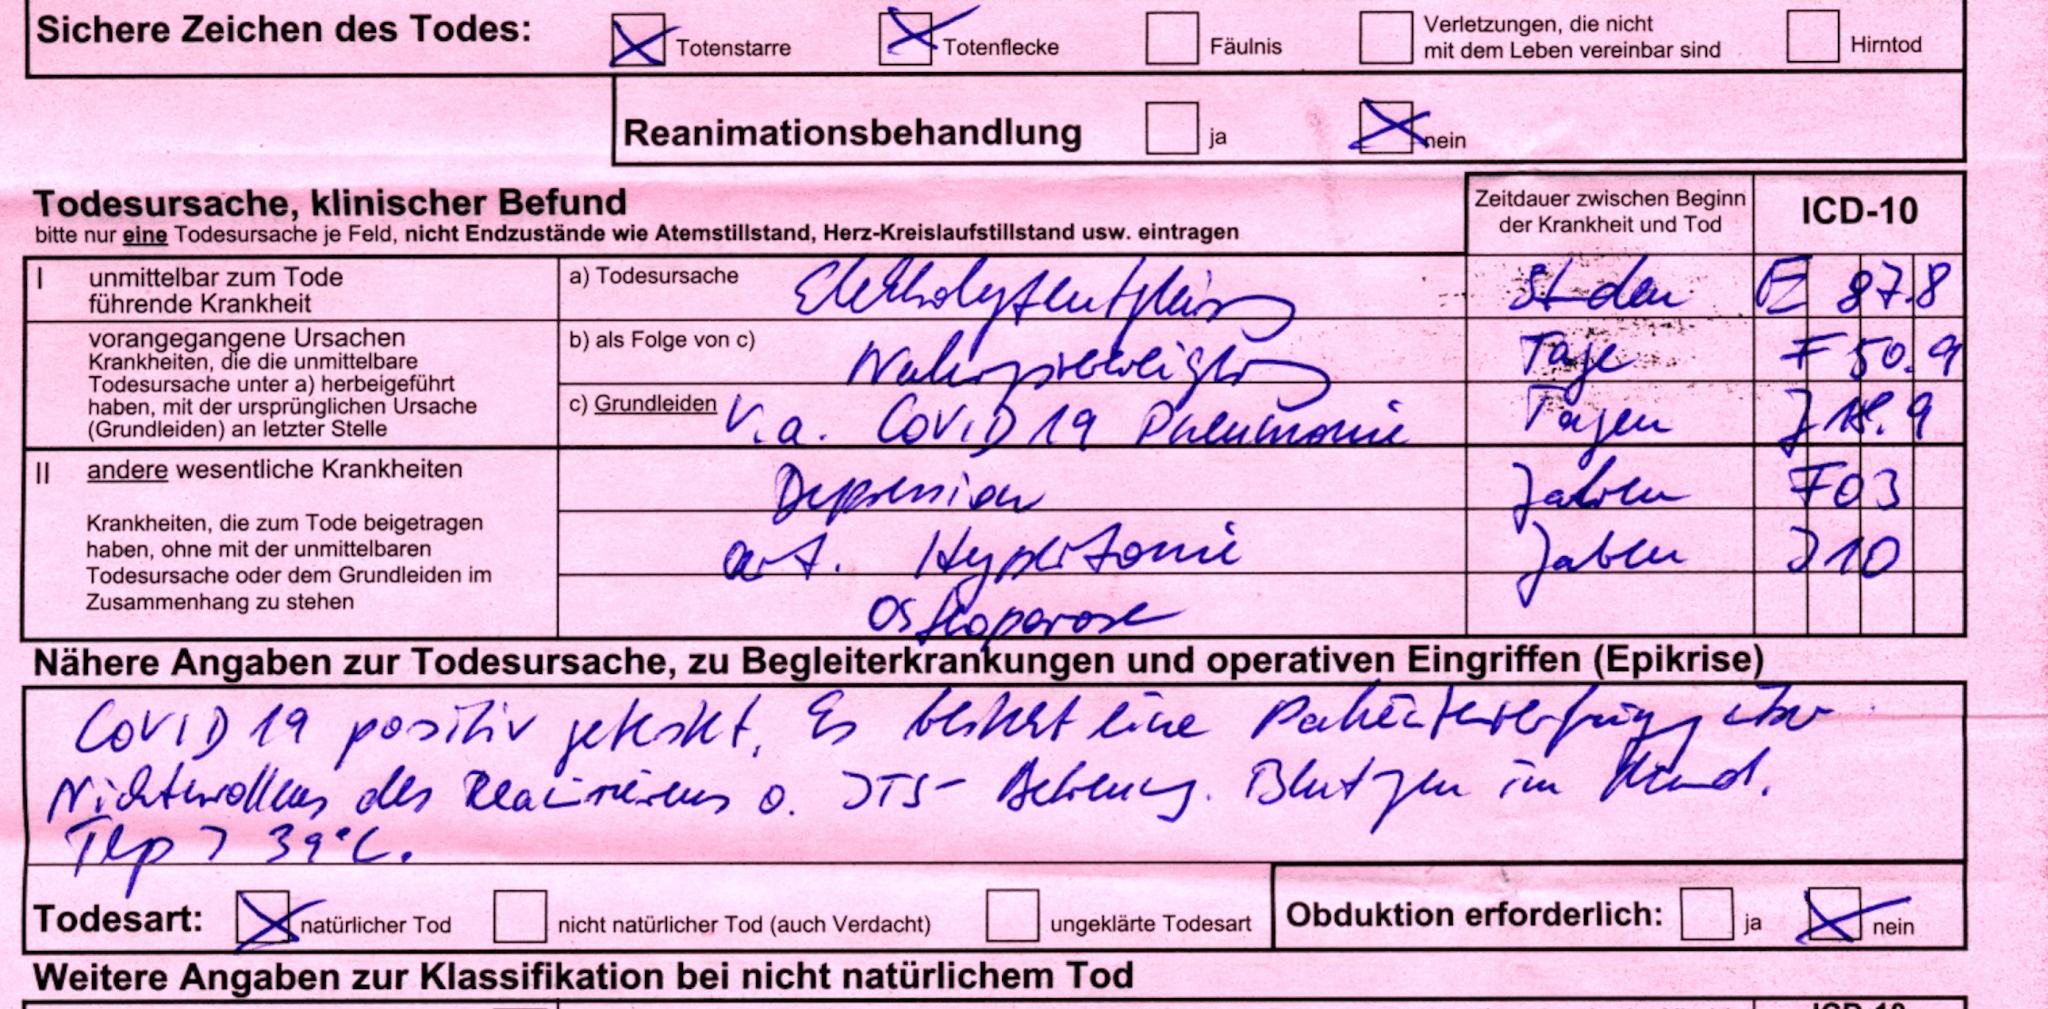 Sichere Zeichen des Todes: Totenstarre Totenflecke Fäulnis Verletzungen, die nicht mit dem Leben vereinbar sind Hirntod
Reanimationsbehandlung ja nein
Todesursache, klinischer Befund
bitte nur eine Todesursache je Feld, nicht Endzustände wie Atemstillstand, Herz-Kreislaufstillstand usw. eintragen
Zeitdauer zwischen Beginn
der Krankheit und Tod
ICD-10
I unmittelbar zum Tode
führende Krankheit
a) Todesursache Elektrolytentgleisung Stunden E 87.8
vorangegangene Ursachen
Krankheiten, die die unmittelbare
Todesursache unter a) herbeigeführt
haben, mit der ursprünglichen Ursache
(Grundleiden) an letzter Stelle
b) als Folge von c) Nahrungsverweigerung Tage F 50.9
c) Grundleiden V.a. COVID 19 Pneumonie Tagen J 18.9
II andere wesentliche Krankheiten
Krankheiten, die zum Tode beigetragen
haben, ohne mit der unmittelbaren
Todesursache oder dem Grundleiden im
Zusammenhang zu stehen
Depression Jahren F03
art. Hypertonie Jahren I10
Osteoporose
Nähere Angaben zur Todesursache, zu Begleiterkrankungen und operativen Eingriffen (Epikrise)
COVID 19 positiv getestet. Es besteht eine Patientenverfügung
Nichtwollens des Reanimierens o. ITS- Blut im Mund.
Temp > 39°C.
Todesart: natürlicher Tod nicht natürlicher Tod (auch Verdacht) ungeklärte Todesart Obduktion erforderlich: ja nein
Weitere Angaben zur Klassifikation bei nicht natürlichem Tod
ICD-10